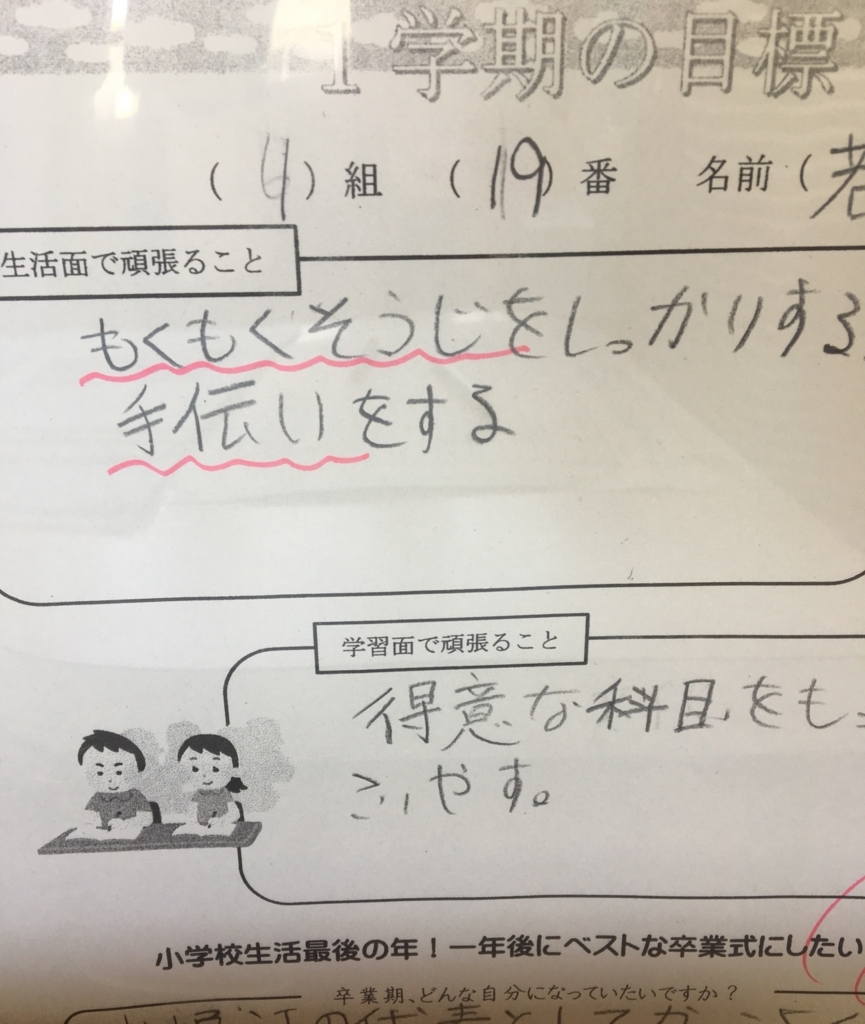 1学期の目標
(4)組 (19)番 名前(若
生活面で頑張ること
もくもくそうじをしっかりする
手伝いをする
学習面で頑張ること
得意な科目をもっ
ふやす。
小学校生活最後の年！一年後にベストな卒業式にしたい
卒業期、どんな自分になっていたいですか？